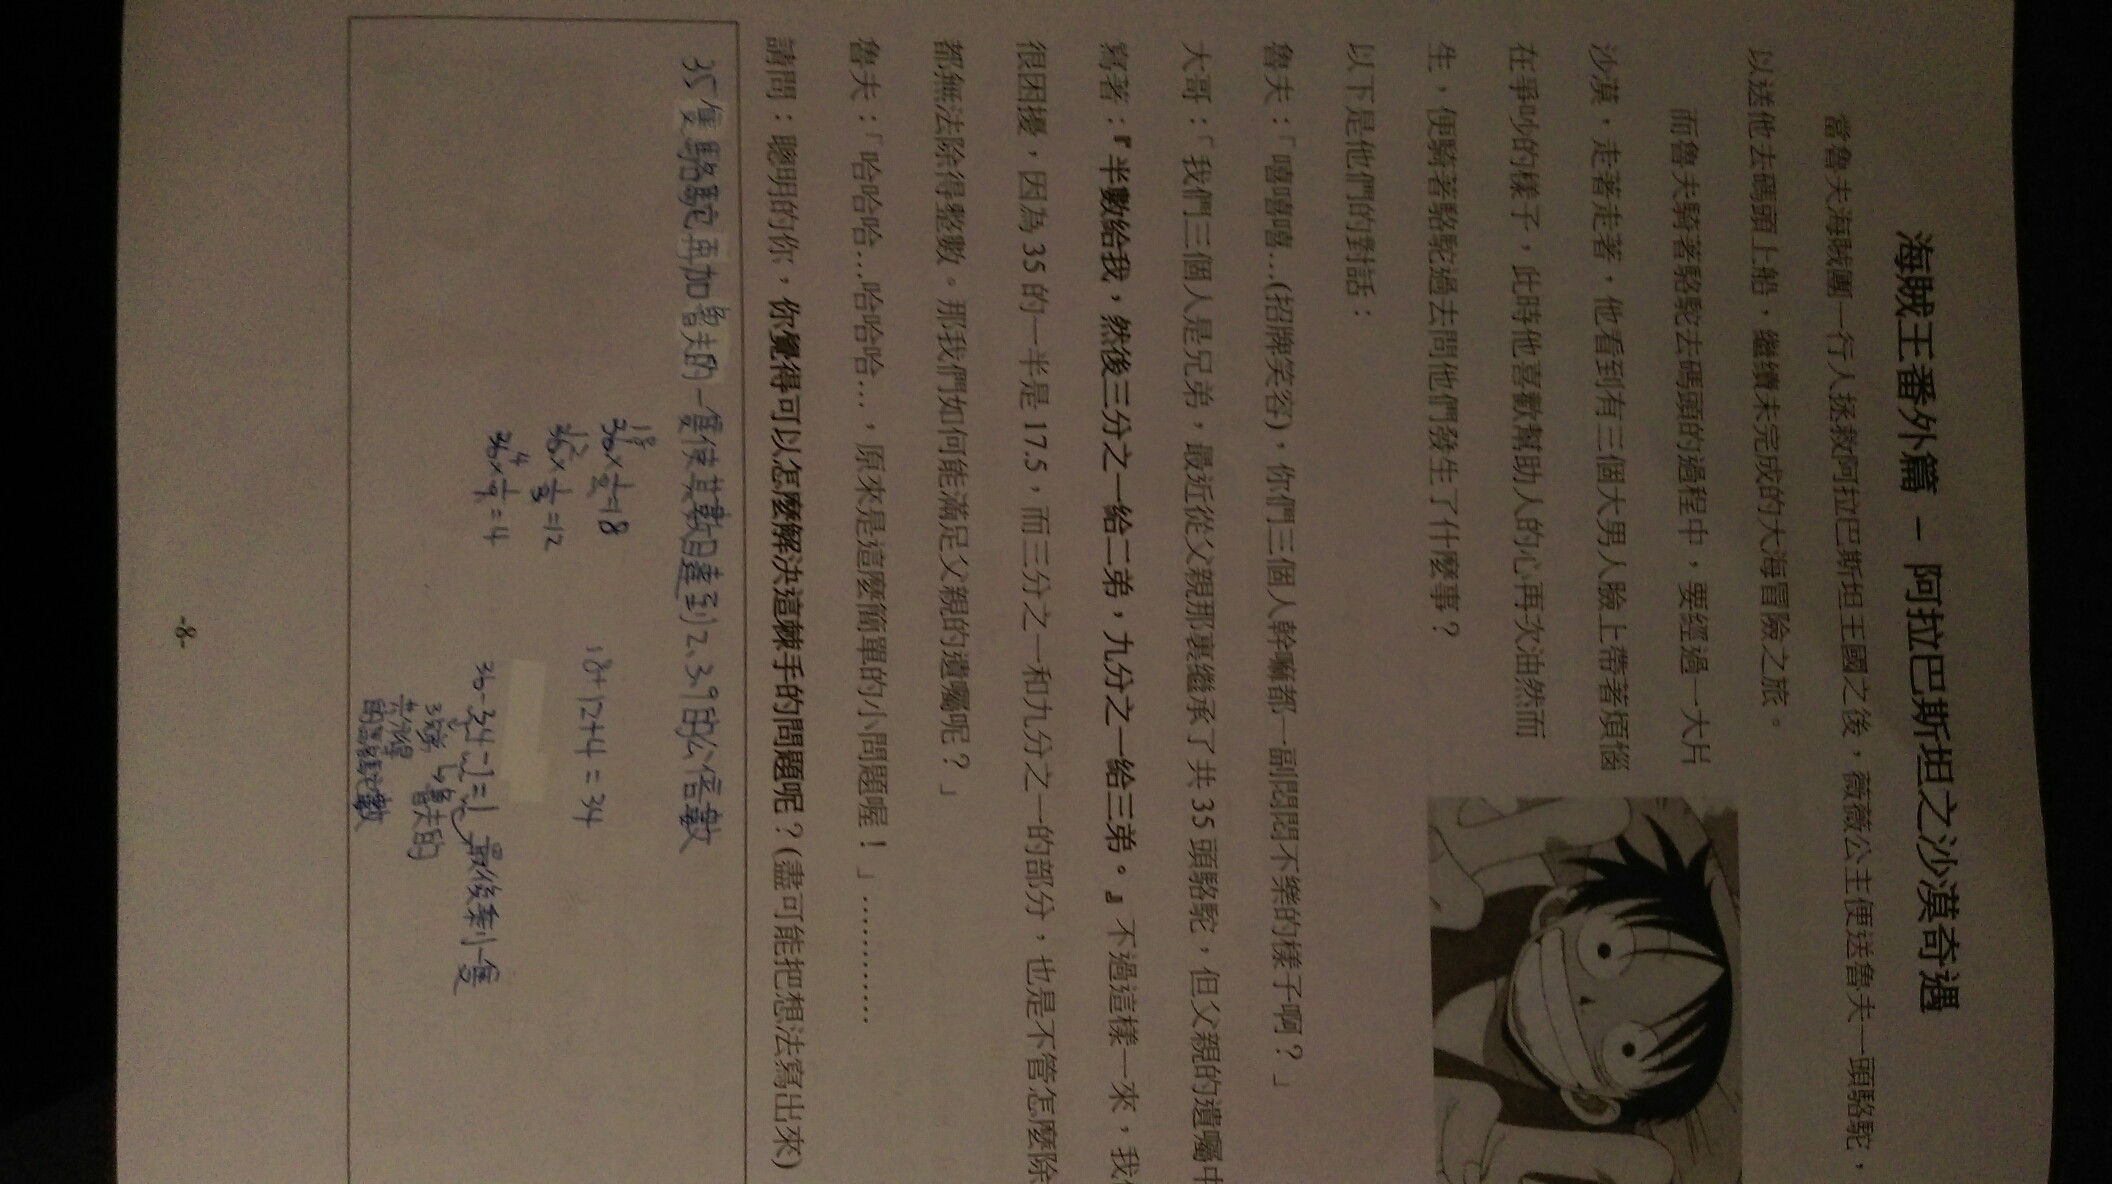 海賊王番外篇 － 阿拉巴斯坦之沙漠奇遇
當魯夫海賊團一行人拯救阿拉巴斯坦王國之後，薇薇公主便送魯夫一頭駱駝，
以送他去碼頭上船，繼續未完成的大海冒險之旅。
而魯夫騎著駱駝去碼頭的過程中，要經過一大片
沙漠，走著走著，他看到有三個大男人臉上帶著煩惱
在爭吵的樣子，此時他喜歡幫助人的心再次油然而
生，便騎著駱駝過去問他們發生了什麼事？
以下是他們的對話：
魯夫：「嘻嘻嘻…(招牌笑容)，你們三個人幹嘛都一副悶悶不樂的樣子啊？」
大哥：「我們三個人是兄弟，最近從父親那裏繼承了共 35 頭駱駝，但父親的遺囑中
寫著：『半數給我，然後三分之一給二弟，九分之一給三弟。』不過這樣一來，我
很困擾，因為 35 的一半是 17.5，而三分之一和九分之一的部分，也是不管怎麼除
都無法除得整數。那我們如何能滿足父親的遺囑呢？」
魯夫：「哈哈哈…哈哈哈…，原來是這麼簡單的小問題喔！」…………
請問：聰明的你，你覺得可以怎麼解決這棘手的問題呢？(盡可能把想法寫出來)
35隻駱駝再加魯夫的一隻使其數目達到2、3、9的公倍數
18
36×1/2=18
12
36×1/3=12
4
36×1/9=4
18+12+4=34
36-34-1=1 最後剩一隻
魯夫的
共分得
的駱駝數
-8-